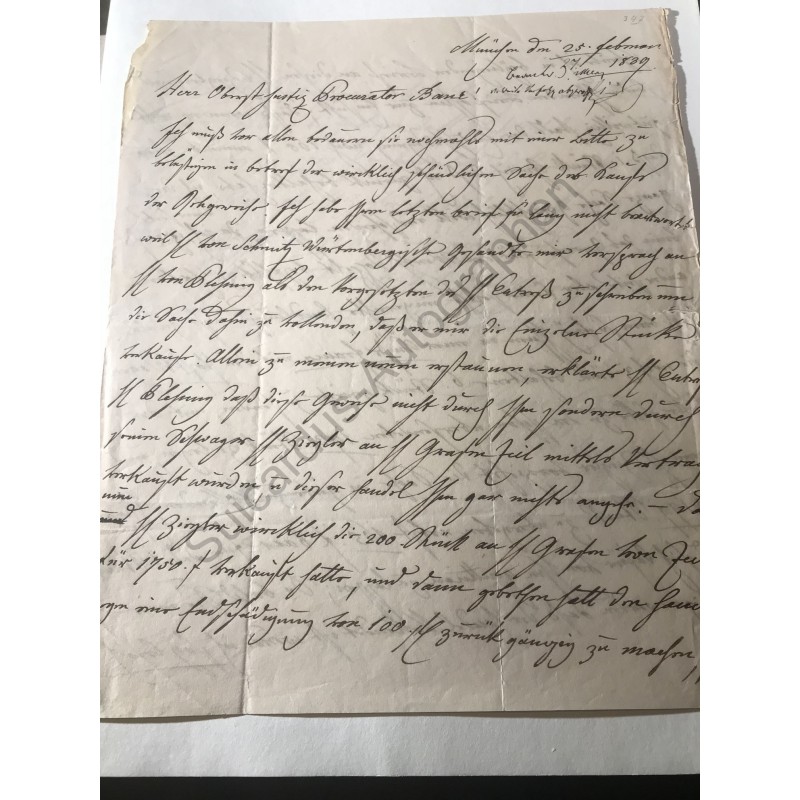 München den 25. Februar
1839
Herr Oberst-Justiz Procurator Bane!
Ich muß vor allen bedauern sie nochmahls mit einer Bitte zu
belästigen in betref der wircklich schändlichen Sache des Kaufs
der Rehgeweihe. Ich habe Ihren letzten brief so lang nicht beantwortet
weil H von Schmitz Würtenbergische Gesandte mir versprach an
H von Plessing als den Vorgesetzten des H zu schreiben um
die Sache dahin zu vollenden, daß er mir die Einzelne Stücke
verkaufe. Allein zu meinem erstaunen, erklärte H
H Plessing daß diese Geweihe nicht durch Ihn sondern durch
seinen Schwager H Ziegler an H Grafen Zeil mittels Vertrag
verkauft wurden u dieser handel Ihn gar nichts angehe. – Da
nun
H Ziegler wircklich die 200 Stück an H Grafen von Zeil
für 1750 f verkauft hatte, und dann gebothen hatt den
eine Endschädigung von 100 fl zurück gängig zu machen,
Sucardus-Autographen